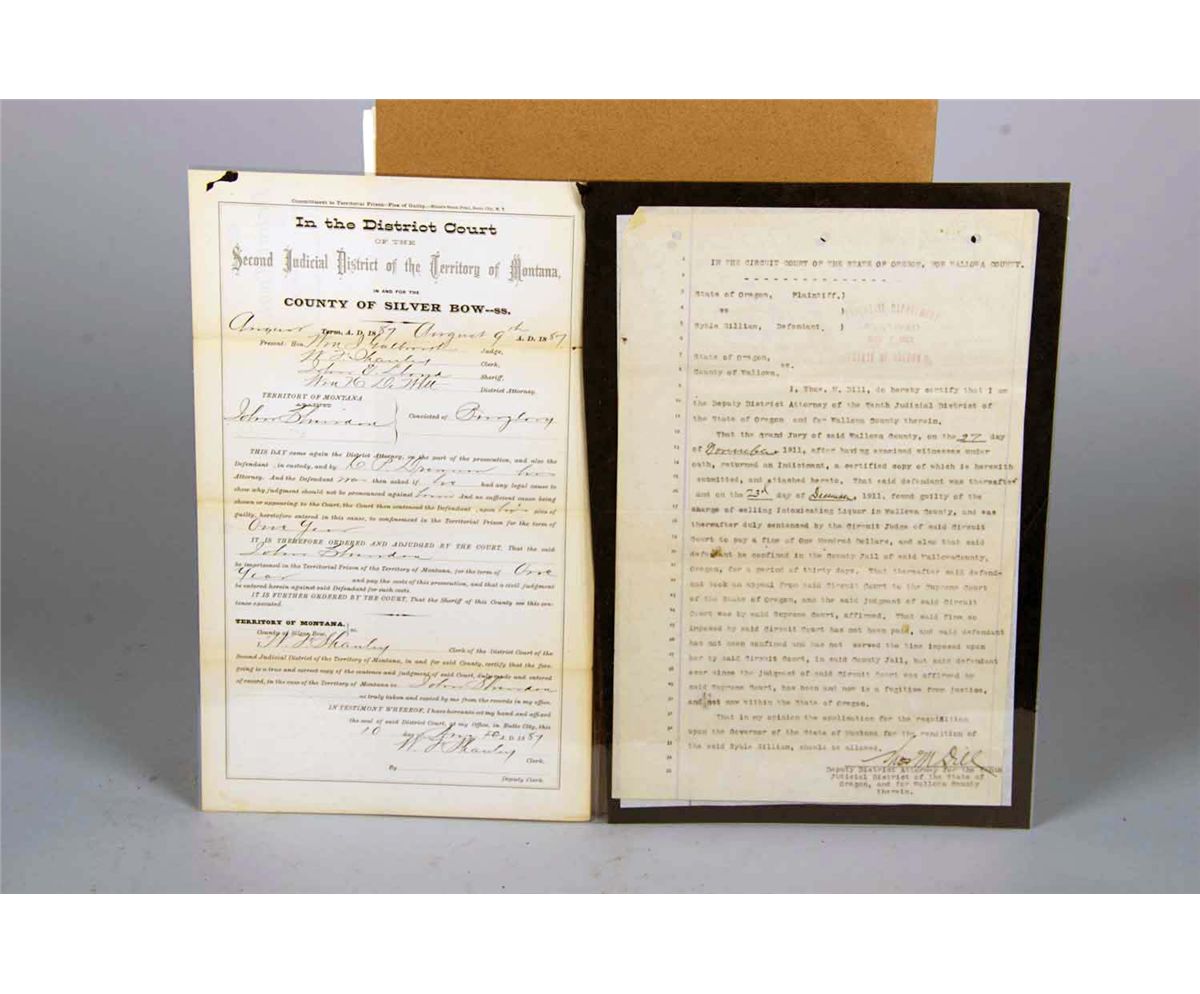 Commitment to Territorial Prison—Plea of Guilty.
In the District Court
OF THE
Second Judicial District of the Territory of Montana,
IN AND FOR THE
COUNTY OF SILVER BOW--ss.
August Term, A. D. 1887 August 9th A. D. 1887
Present: Hon. Judge,
Clerk,
Sheriff,
District Attorney.
TERRITORY OF MONTANA
AGAINST
John Convicted of
THIS DAY came again the District Attorney, on the part of the prosecution, and also the
Defendant, in custody, and by his
Attorney. And the Defendant was then asked if he had any legal cause to
show why judgment should not be pronounced against him And no sufficient cause being
shown or appearing to the Court, the Court then sentenced the Defendant, upon his plea of
guilty, heretofore entered in this cause, to confinement in the Territorial Prison for the term of
One Year
IT IS THEREFORE ORDERED AND ADJUDGED BY THE COURT, That the said
John
be imprisoned in the Territorial Prison of the Territory of Montana, for the term of One
Year and pay the costs of this prosecution, and that a civil judgment
be entered herein against said Defendant for such costs.
IT IS FURTHER ORDERED BY THE COURT, That the Sheriff of this County see this sen-
tence executed.
TERRITORY OF MONTANA, ss.
County of Silver Bow.
Clerk of the District Court of the
Second Judicial District of the Territory of Montana, in and for said County, certify that the fore-
going is a true and correct copy of the sentence and judgment of said Court, duly made and entered
of record, in the case of the Territory of Montana vs. John
as truly taken and copied by me from the records in my office.
IN TESTIMONY WHEREOF, I have hereunto set my hand and affixed
the seal of said District Court, at my Office, in Butte City, this
10 day of A. D. 1887
Clerk.
By
Deputy Clerk.
IN THE CIRCUIT COURT OF THE STATE OF OREGON, FOR WALLOWA COUNTY.
State of Oregon, Plaintiff,)
vs )
Syble Gilliam, Defendant, )
State of Oregon,
ss.
County of Wallowa.
I, Thos. M. Dill, do hereby certify that I am
the Deputy District Attorney of the Tenth Judicial District of
the State of Oregon and for Wallowa County therein.
That the Grand Jury of said Wallowa County, on the 27 day
of November 1911, after having examined witnesses under
oath, returned an Indictment, a certified copy of which is herewith
submitted, and attached hereto. That said defendant was thereafter
and on the 23rd day of December, 1911, found guilty of the
charge of selling Intoxicating Liquor in Wallowa County, and was
thereafter duly sentenced by the Circuit Judge of said Circuit
Court to pay a fine of One Hundred Dollars, and also that said
defendant be confined in the County Jail of said WallowaCounty,
Oregon, for a period of thirty days. That thereafter said defend-
ant took an appeal from said Circuit Court to the Supreme Court
of the State of Oregon, and the said judgment of said Circuit
Court was by said Supreme Court, affirmed. That said fine so
imposed by said Circuit Court has not been paid, and said defendant
has not been confined and has not served the time imposed upon
her by said Circuit Court, in said County Jail, but said defendant
ever since the judgment of said Circuit Court was affirmed by
said Supreme Court, has been and now is a fugitive from justice,
and not now within the State of Oregon.
That in my opinion the application for the requisition
upon the Governor of the State of Montana for the rendition of
the said Syble Gilliam, should be allowed.
Thos M Dill
Deputy District Attorney for the Tenth
Judicial District of the State of
Oregon, and for Wallowa County
therein.